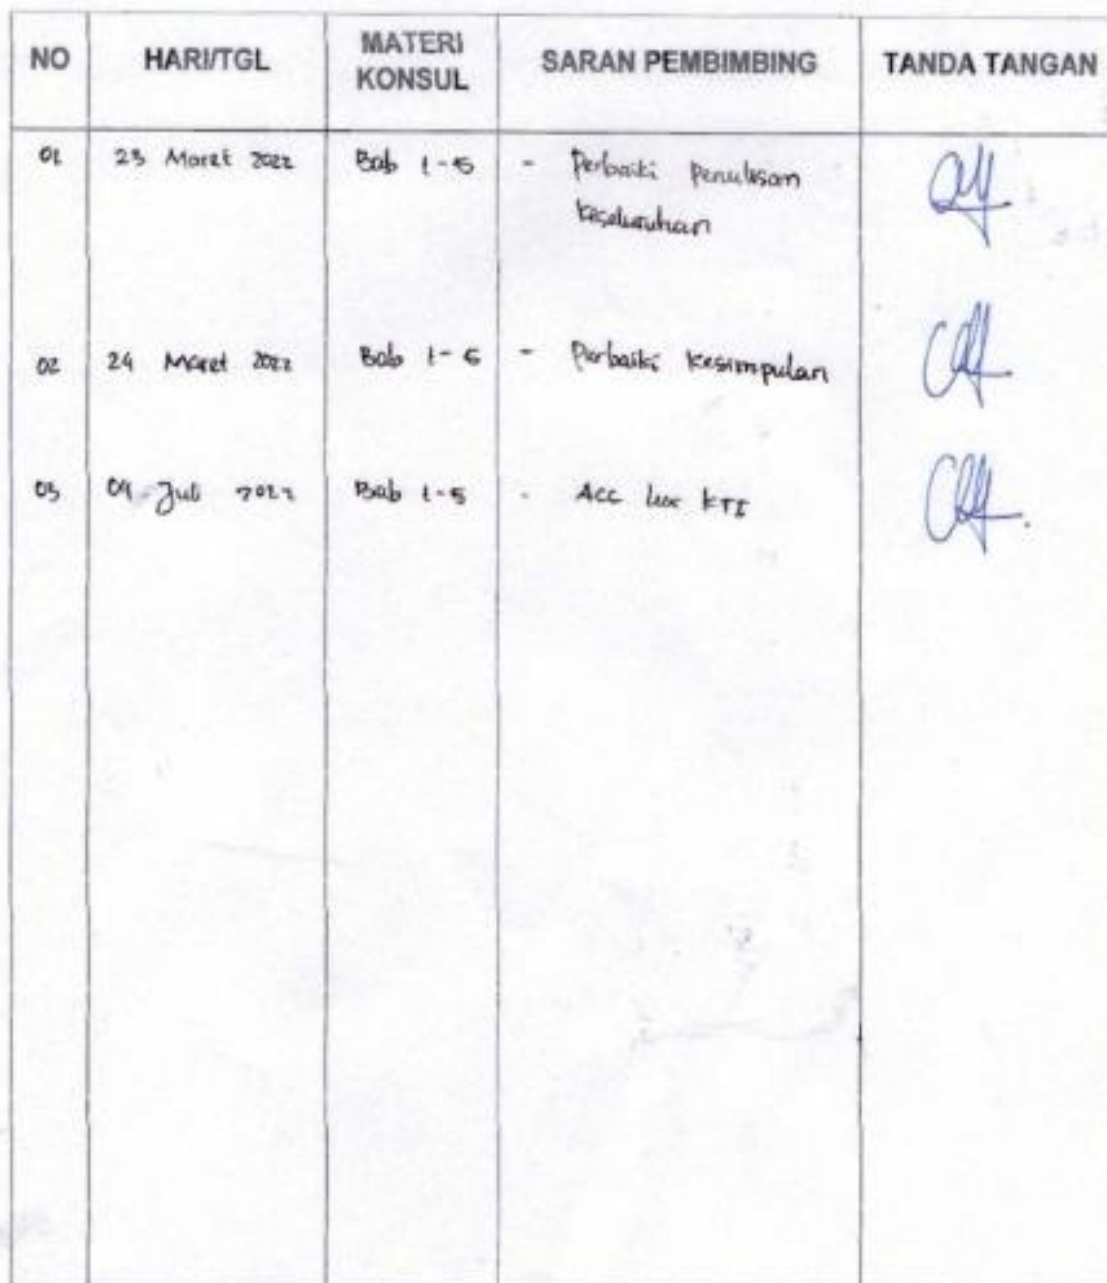 NO HARI/TGL MATERI KONSUL SARAN PEMBIMBING TANDA TANGAN
01 23 Maret 2022 Bab 1-5 - Perbaiki Penulisan
keseluruhan
02 24 Maret 2022 Bab 1-5 - Perbaiki Kesimpulan
03 Juli 2022 Bab 1-5 - ACC KTI